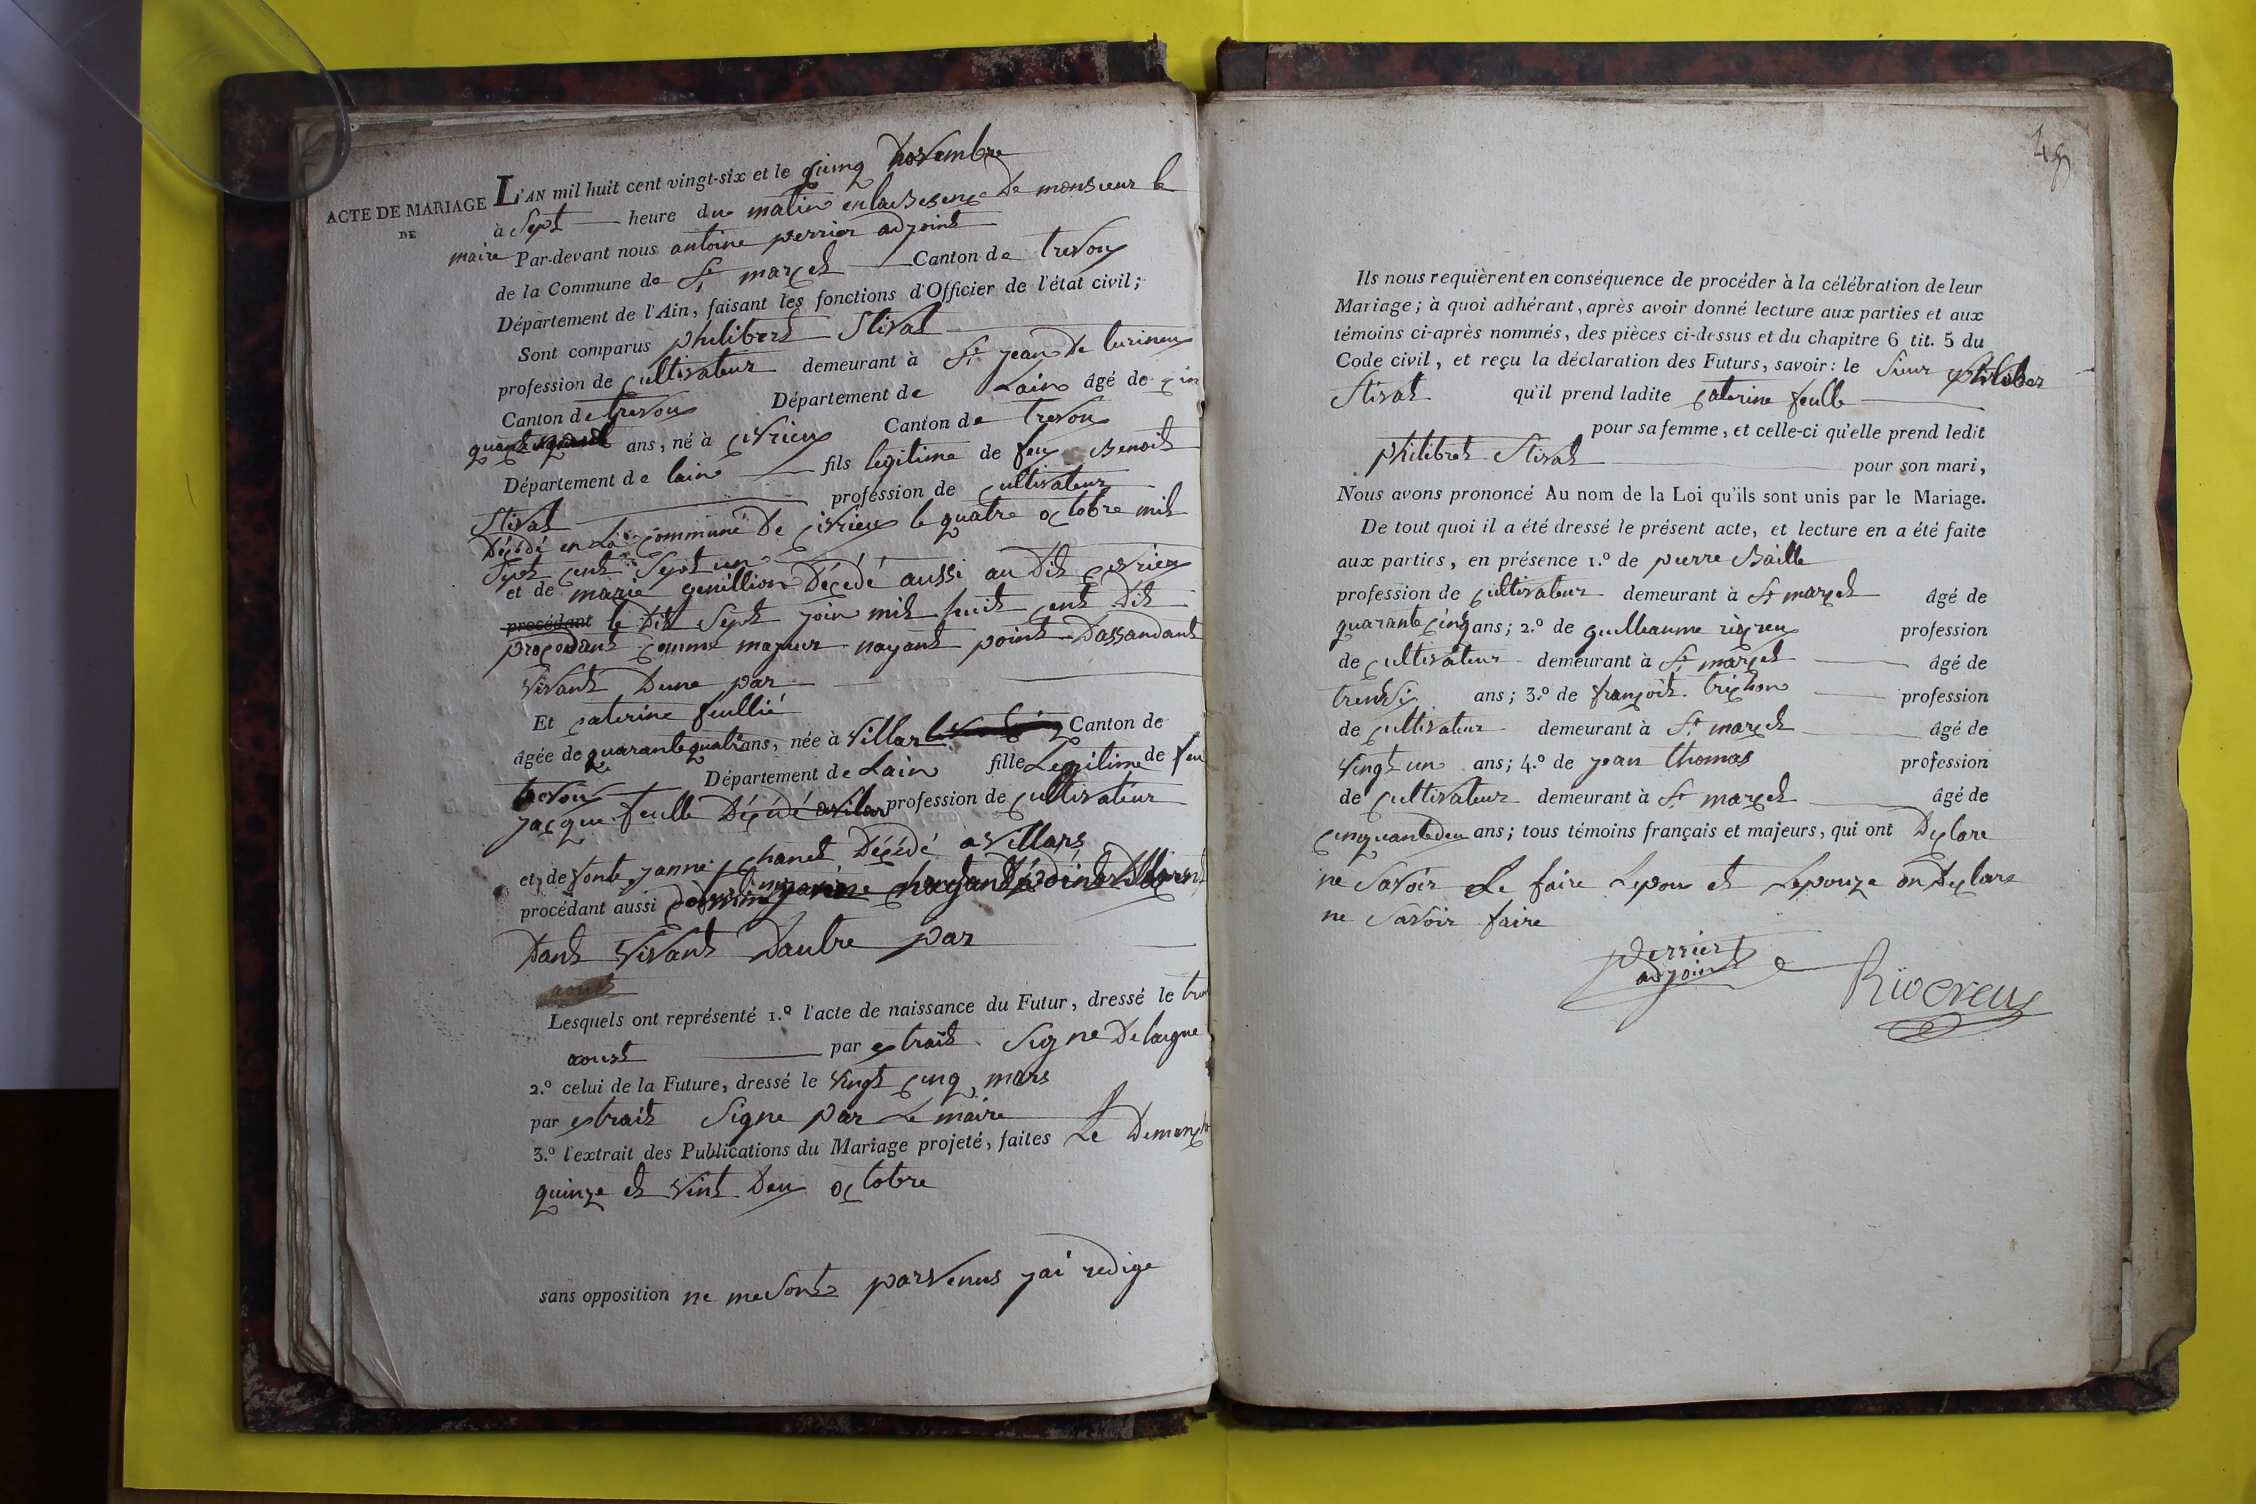 ACTE DE MARIAGE
DE
L'AN mil huit cent vingt-six et le cinq novembre
à Sept heure du matin en la presence De monsieur le
maire Par-devant nous antoine perrier adjoint
de la Commune de St marcel Canton de trevoux
Département de l'Ain, faisant les fonctions d'Officier de l'état civil;
Sont comparus philibert Stival
profession de cultivateur demeurant à St jean De turineux
Canton de trevoux Département de Lain âgé de cin
quante ans, né à civrieux Canton de trevoux
Département de lain fils legitime de feu Benoit
Stival profession de cultivateur
Décédé en La commune De civrieux le quatre octobre mil
Sept cent Sept un
et de marie genillion Décédé aussi au Dit civrieux
procédant le Dit Sept join mil huit cent Dit
procedant comme majeur nayant point Dassandant
vivant Dune par
Et caterine feullié
âgée de quarante quatre ans, née à villar Canton de
trevoux Département de Lain fille Legitime de feu
jacque feulle Décédé avilar profession de cultivateur
et de fonte janne chanet Décédé a villars
procédant aussi
Dant vivant Dautre par
aoust
Lesquels ont représenté 1.º l'acte de naissance du Futur, dressé le
aoust par extrait Signe Delaigne
2.º celui de la Future, dressé le vingt cinq mars
par extrait Signe par Le maire
3.º l'extrait des Publications du Mariage projeté, faites Le Demanch
quinze et vint Deux octobre
sans opposition ne me Sont parvenus jai redige
48
Ils nous requièrent en conséquence de procéder à la célébration de leur
Mariage; à quoi adhérant, après avoir donné lecture aux parties et aux
témoins ci-après nommés, des pièces ci-dessus et du chapitre 6 tit. 5 du
Code civil, et reçu la déclaration des Futurs, savoir: le Sieur philiber
Stival qu'il prend ladite caterine feulle
pour sa femme, et celle-ci qu'elle prend ledit
philibret Stival pour son mari,
Nous avons prononcé Au nom de la Loi qu'ils sont unis par le Mariage.
De tout quoi il a été dressé le présent acte, et lecture en a été faite
aux parties, en présence 1.º de pierre Baille
profession de cultivateur demeurant à St marcel âgé de
quarante cinq ans; 2.º de guilleaume riocreux profession
de cultivateur demeurant à St marcel âgé de
trentsix ans; 3.º de françoit trichon profession
de cultivateur demeurant à St marcel âgé de
vingt un ans; 4.º de jean thomas profession
de cultivateur demeurant à St marcel âgé de
cinquantedeu ans; tous témoins français et majeurs, qui ont Declare
ne Savoir Le faire Lepou et Lepouze on Declare
ne Savoir faire
perrier
adjoint
Riocreux